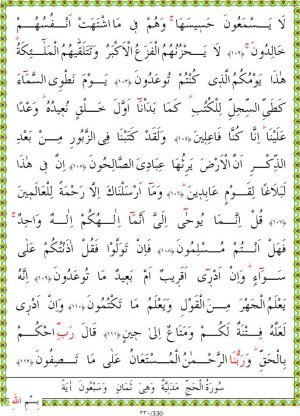 لَا يَسْمَعُونَ حَسِيسَهَا ۚ وَهُمْ فِى مَا اشْتَهَتْ اَنْفُسُهُمْ
خَالِدُونَ ﴿١٠٢﴾ لَا يَحْزُنُهُمُ الْفَزَعُ الْاَكْبَرُ وَتَتَلَقّٰيهُمُ الْمَلٰٓئِكَةُ
هٰذَا يَوْمُكُمُ الَّذِى كُنْتُمْ تُوعَدُونَ ﴿١٠٣﴾ يَوْمَ نَطْوِى السَّمَٓاءَ
كَطَىِّ السِّجِلِّ لِلْكُتُبِ ۜ كَمَا بَدَاْنَٓا اَوَّلَ خَلْقٍ نُعِيدُهُ ۜ وَعْدًا
عَلَيْنَا ۜ اِنَّا كُنَّا فَاعِلِينَ ﴿١٠٤﴾ وَلَقَدْ كَتَبْنَا فِى الزَّبُورِ مِنْ بَعْدِ
الذِّكْرِ اَنَّ الْاَرْضَ يَرِثُهَا عِبَادِىَ الصَّالِحُونَ ﴿١٠٥﴾ اِنَّ فِى هٰذَا
لَبَلَاغًا لِقَوْمٍ عَابِدِينَ ﴿١٠٦﴾ وَمَٓا اَرْسَلْنَاكَ اِلَّا رَحْمَةً لِلْعَالَمِينَ
﴿١٠٧﴾ قُلْ اِنَّمَا يُوحٰٓى اِلَىَّ اَنَّمَٓا اِلٰهُكُمْ اِلٰهٌ وَاحِدٌ ۚ
فَهَلْ اَنْتُمْ مُسْلِمُونَ ﴿١٠٨﴾ فَاِنْ تَوَلَّوْا فَقُلْ اٰذَنْتُكُمْ عَلٰى
سَوَٓاءٍ ۜ وَاِنْ اَدْرِٓى اَقَرِيبٌ اَمْ بَعِيدٌ مَا تُوعَدُونَ ﴿١٠٩﴾ اِنَّهُ
يَعْلَمُ الْجَهْرَ مِنَ الْقَوْلِ وَيَعْلَمُ مَا تَكْتُمُونَ ﴿١١٠﴾ وَاِنْ اَدْرِى
لَعَلَّهُ فِتْنَةٌ لَكُمْ وَمَتَاعٌ اِلٰى حِينٍ ﴿١١١﴾ قَالَ رَبِّ احْكُمْ
بِالْحَقِّ ۜ وَرَبُّنَا الرَّحْمٰنُ الْمُسْتَعَانُ عَلٰى مَا تَصِفُونَ ﴿١١٢﴾
سُورَةُ الْحَجِّ مَدَنِيَّةٌ وَهِىَ ثَمَانٍ وَسَبْعُونَ اٰيَةً
بِسْمِ اللّٰهِ
٣٣٠/330